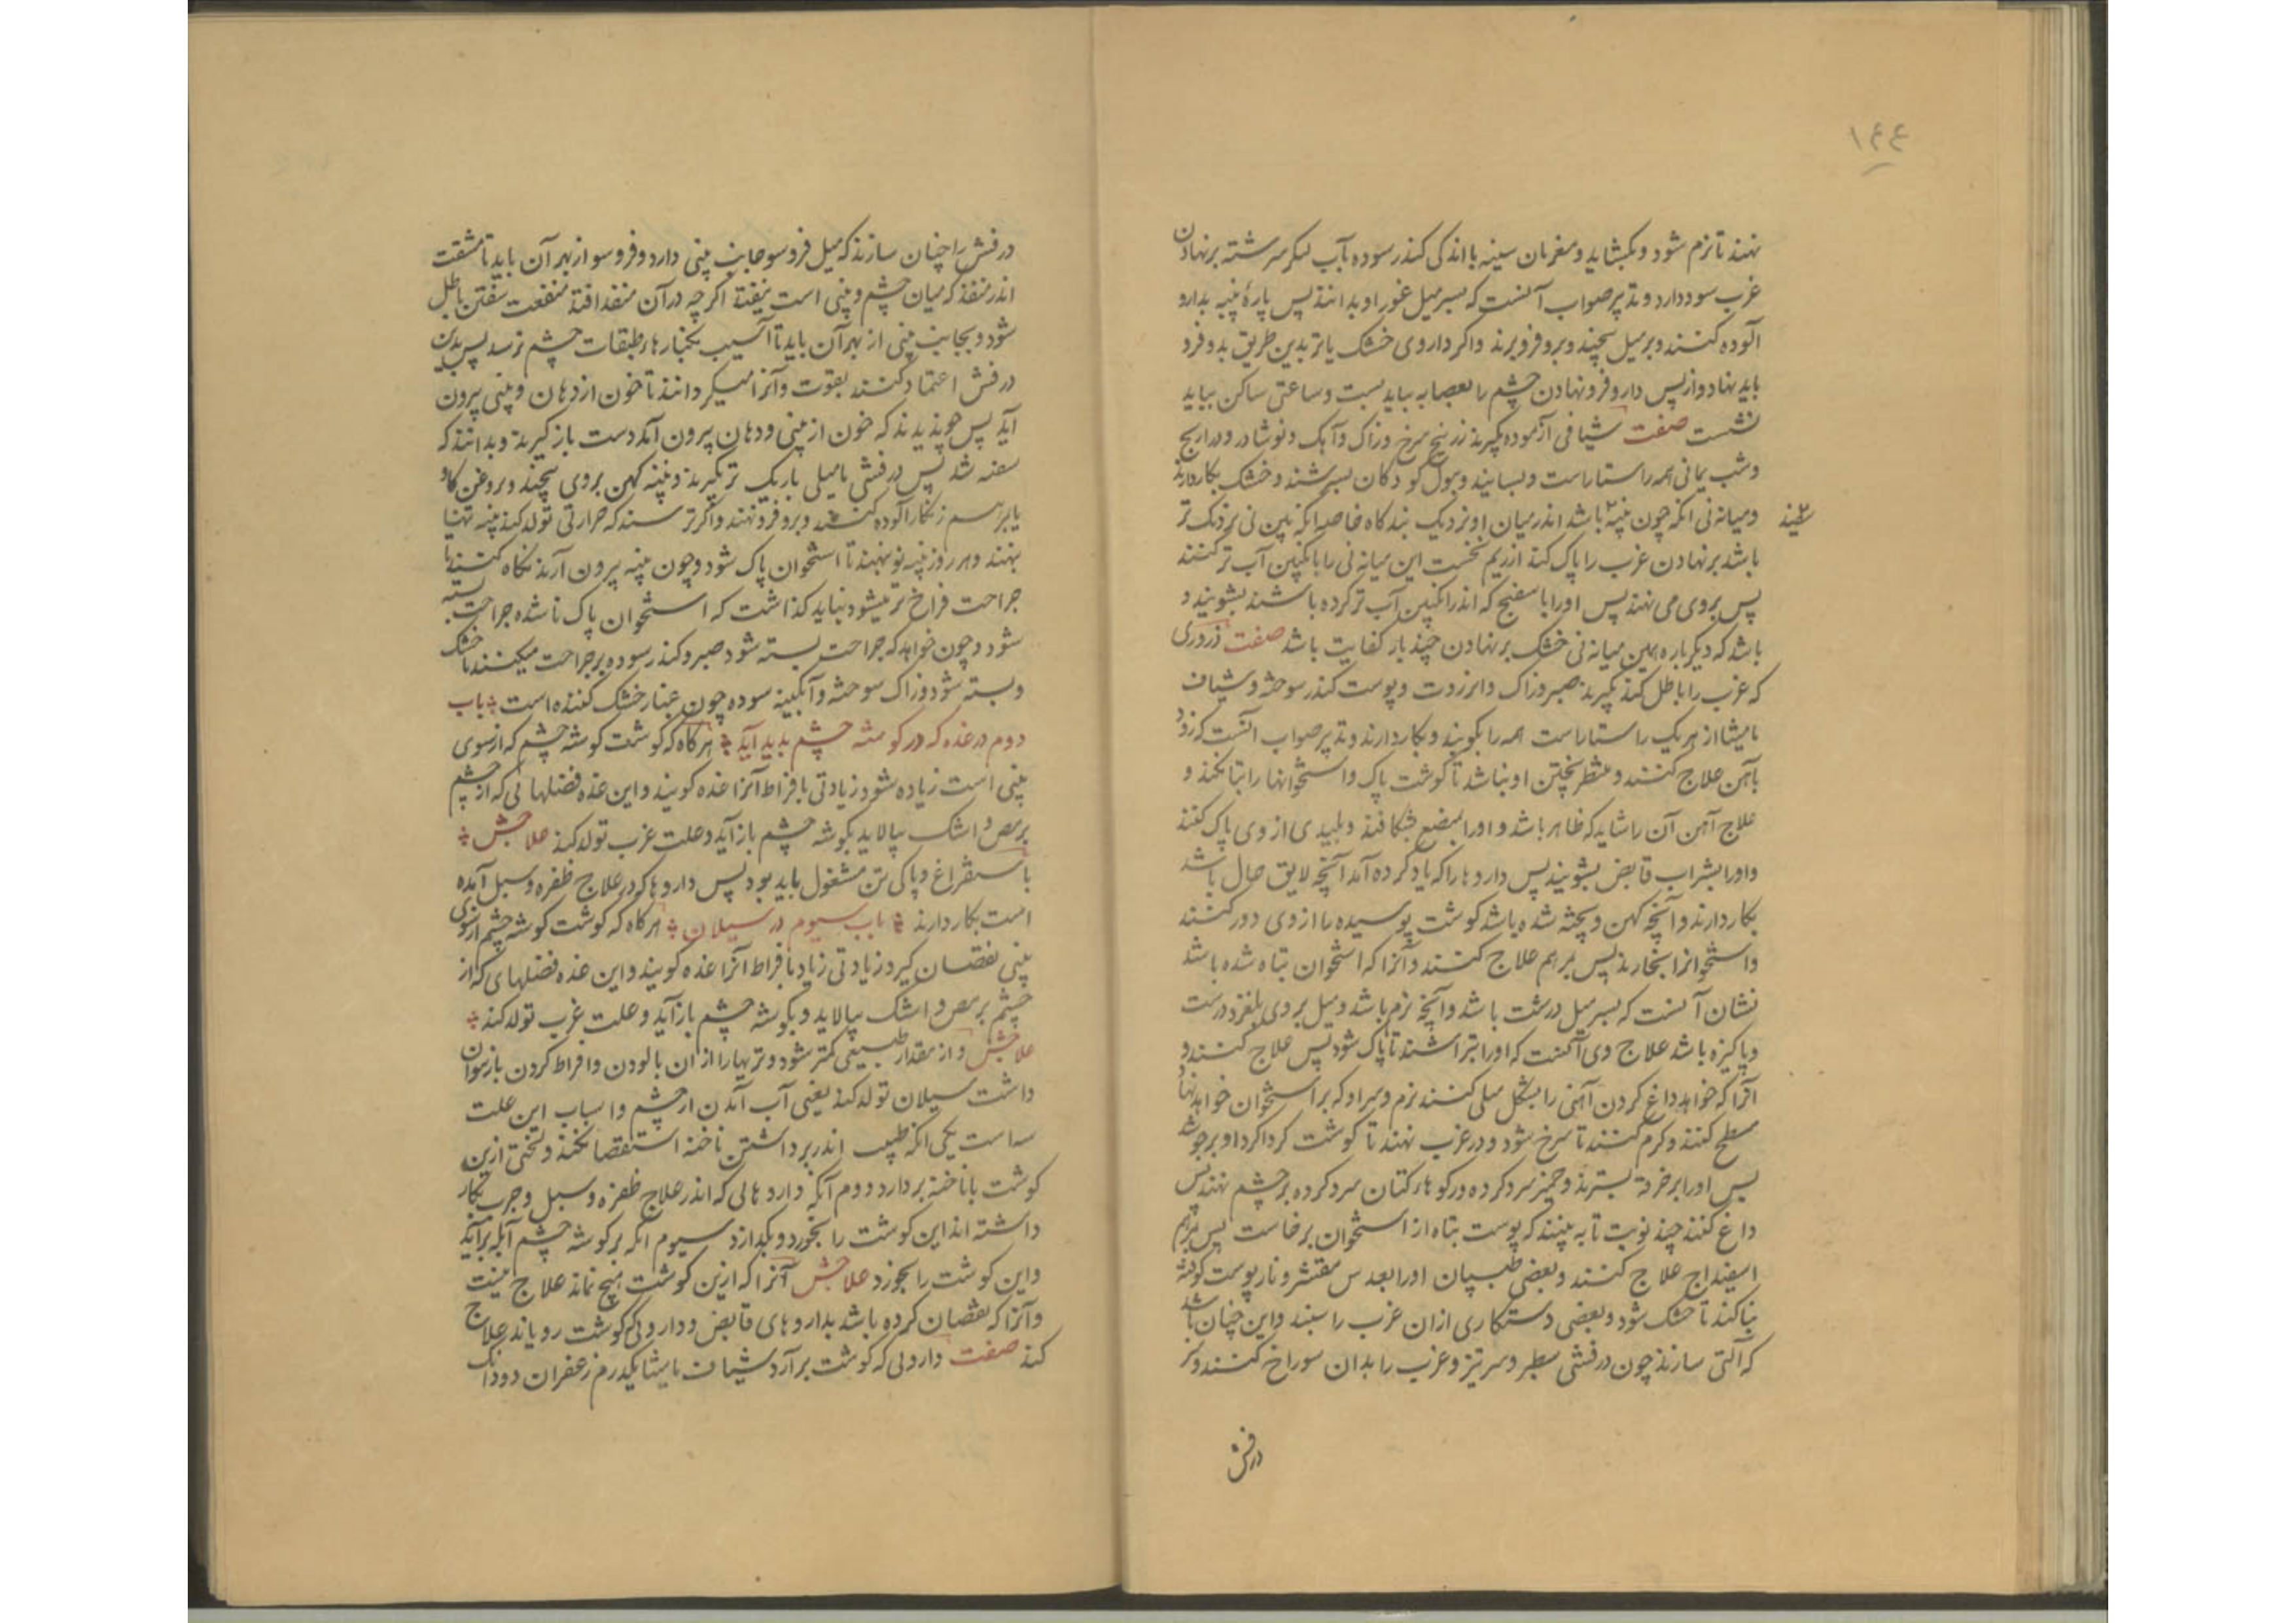 ۱۴۴
نهند تا نرم شود و بکشاید و مغز نان سینه با اندکی کندر سوده بآب لسکر سرشته برنهادن
غرب سود دارد و تدپیر صواب آنست که بسر میل غور او بدانند پس پارهٔ پنبه بدارو
آلوده کنند و بر میل پیچند و بدو فرو برند و اکر داروی خشک یا تر بدین طریق بدو فرو
باید نهاد و از پس دارو فرو نهادن چشم را بعصابه بباید بست و ساعتی ساکن بباید
نشست صفت شیافی آزموده بکیرند زرنیخ سرخ و زاک و آهک و نوشادر و ذراریح
و شب یمانی همه راستاراست و بسایند و ببول کودکان بسرشند و خشک بکار دارند
و میانه نی انکه چون پنبه باشد اندر میان او نزدیک بندکاه خاصه انکه ببن نی نزدیک تر
باشد برنهادن غرب را پاک کند از ریم نخست این میانه نی را بانکبین آب تر کنند
پس بروی می نهند پس او را با سفنج که اندر انکبین آب تر کرده باشند بشویند و
باشد که دیکر باره همین میانه نی خشک برنهادن چند بار کفایت باشد صفت ذروری
که غرب را باطل کند بکیرند صبر و زاک و انزروت و پوست کندر سوخته و شیاف
مامیثا از هر یک راستاراست همه را بکوبند و بکار دارند و تدپیر صواب آنست که زود
بآهن علاج کنند و منتظر پختن او نباشد تا کوشت پاک و استخوانها را تباه نکند و
علاج آهن آن را شاید که ظاهر باشد و او را بمبضع بشکافند و پلیدی از وی پاک کنند
و او را بشراب قابض بشویند پس داروها را که یاد کرده آمد آنچه لایق حال باشد
بکار دارند و آنچه کهن و پخته شده باشد کوشت پوسیده را از وی دور کنند
و استخوانرا بخارند پس بمرهم علاج کنند و آنرا که استخوان تباه شده باشد
نشان آنست که بسر میل درشت باشد و آنچه نرم باشد و میل بروی بلغزد درست
و پاکیزه باشد علاج وی آنست که او را بتراشند تا پاک شود پس علاج کنند و
آنرا که خواهد داغ کردن آهنی را بشکل میلی کنند نرم و سر او که بر استخوان خواهد نهاد
مسطح کنند و کرم کنند تا سرخ شود و در غرب نهند تا کوشت کرداکرد او برجوشد
پس او را بر خرقه بسترند و خمیر سرد کرده و رکوهاء کتان سرد کرده بر چشم نهند پس
داغ کنند چند نوبت تا به بینند که پوست تباه از استخوان برخاست پس بمرهم
اسفیداج علاج کنند و بعضی طبیبان او را بعدس مقشر و نار پوست کوفته
بناکند تا خشک شود و بعضی دستکاری ازان غرب را سبند و این چنان باشد
که آلتی سازند چون درفشی سطبر و سر تیز و غرب را بدان سوراخ کنند و سر
درفش
درفش را چنان سازند که میل فرو سو جانب پنی دارد و فرو سو از بهر آن باید تا مشقت
اندر منفذ که میان چشم و پنی است نیفتد اکر چه در آن منفذ افتد منفعت سفتن باطل
شود و بجانب پنی از بهر آن باید تا آسیب بکنارهاء طبقات چشم نرسد پس بدین
درفش اعتماد کنند بقوت و آنرا میکردانند تا خون از دهان و پنی پیرون
آید پس چون دیدند که خون از پنی و دهان پیرون آمد دست باز کیرند و بدانند که
سفته شد پس درفشی یا میلی باریک تر بکیرند و پنبه کهن بروی پیچند و بروغن کاو
یا بمرهم زنکار آلوده کنند و بدو فرو نهند و اکر ترسند که حرارتی تولد کند پنبه تنها
بنهند و هر روز پنبه نو بنهند تا استخوان پاک شود و چون پنبه پیرون آرند نکاه کنند تا
جراحت فراخ تر میشود نباید کذاشت که استخوان پاک ناشده جراحت بسته
شود و چون خواهد که جراحت بسته شود صبر و کندر سوده بر جراحت میکنند تا خشک
و بسته شود و زاک سوخته و آبکینه سوده چون غبار خشک کننده است باب
دوم در غده که در کوشه چشم بدید آید هرکاه که کوشت کوشه چشم که از سوی
پنی است زیاده شود زیادتی بافراط آنرا غده کویند و این غده فضلهائی که از چشم
برمص و اشک بپالاید بکوشه چشم باز آید و علت غرب تولد کند علاجش
باستفراغ و پاکی تن مشغول باید بود پس داروها که در علاج ظفره و سبل آمده
است بکار دارند باب سیوم در سیلان هرکاه که کوشت کوشه چشم از سوی
پنی نقصان کیرد زیادتی زیاد بافراط آنرا غده کویند و این غده فضلهای که از
چشم برمص و اشک بپالاید و بکوشه چشم باز آید و علت غرب تولد کند
علاجش و از مقدار طبیعی کمتر شود و تریها را از ان پالودن و افراط کردن باز نتوان
داشت سیلان تولد کند یعنی آب آمدن از چشم و اسباب این علت
سه است یکی انکه طبیب اندر برداشتن ناخنه استقصا بکند و لختی ازین
کوشت با ناخنه بردارد دوم آنکه داروهائی که اندر علاج ظفره و سبل و جرب بکار
داشته اند این کوشت را بخورد و بکدازد سیوم انکه بر کوشه چشم آبله برآید
و این کوشت را بخورد علاجش آنرا که ازین کوشت هیچ نماند علاج نیست
و آنرا که نقصان کرده باشد بداروهای قابض و داروئی که کوشت رویاند علاج
کنند صفت داروئی که کوشت برآرد شیاف مامیثا یکدرم زعفران دو دانک